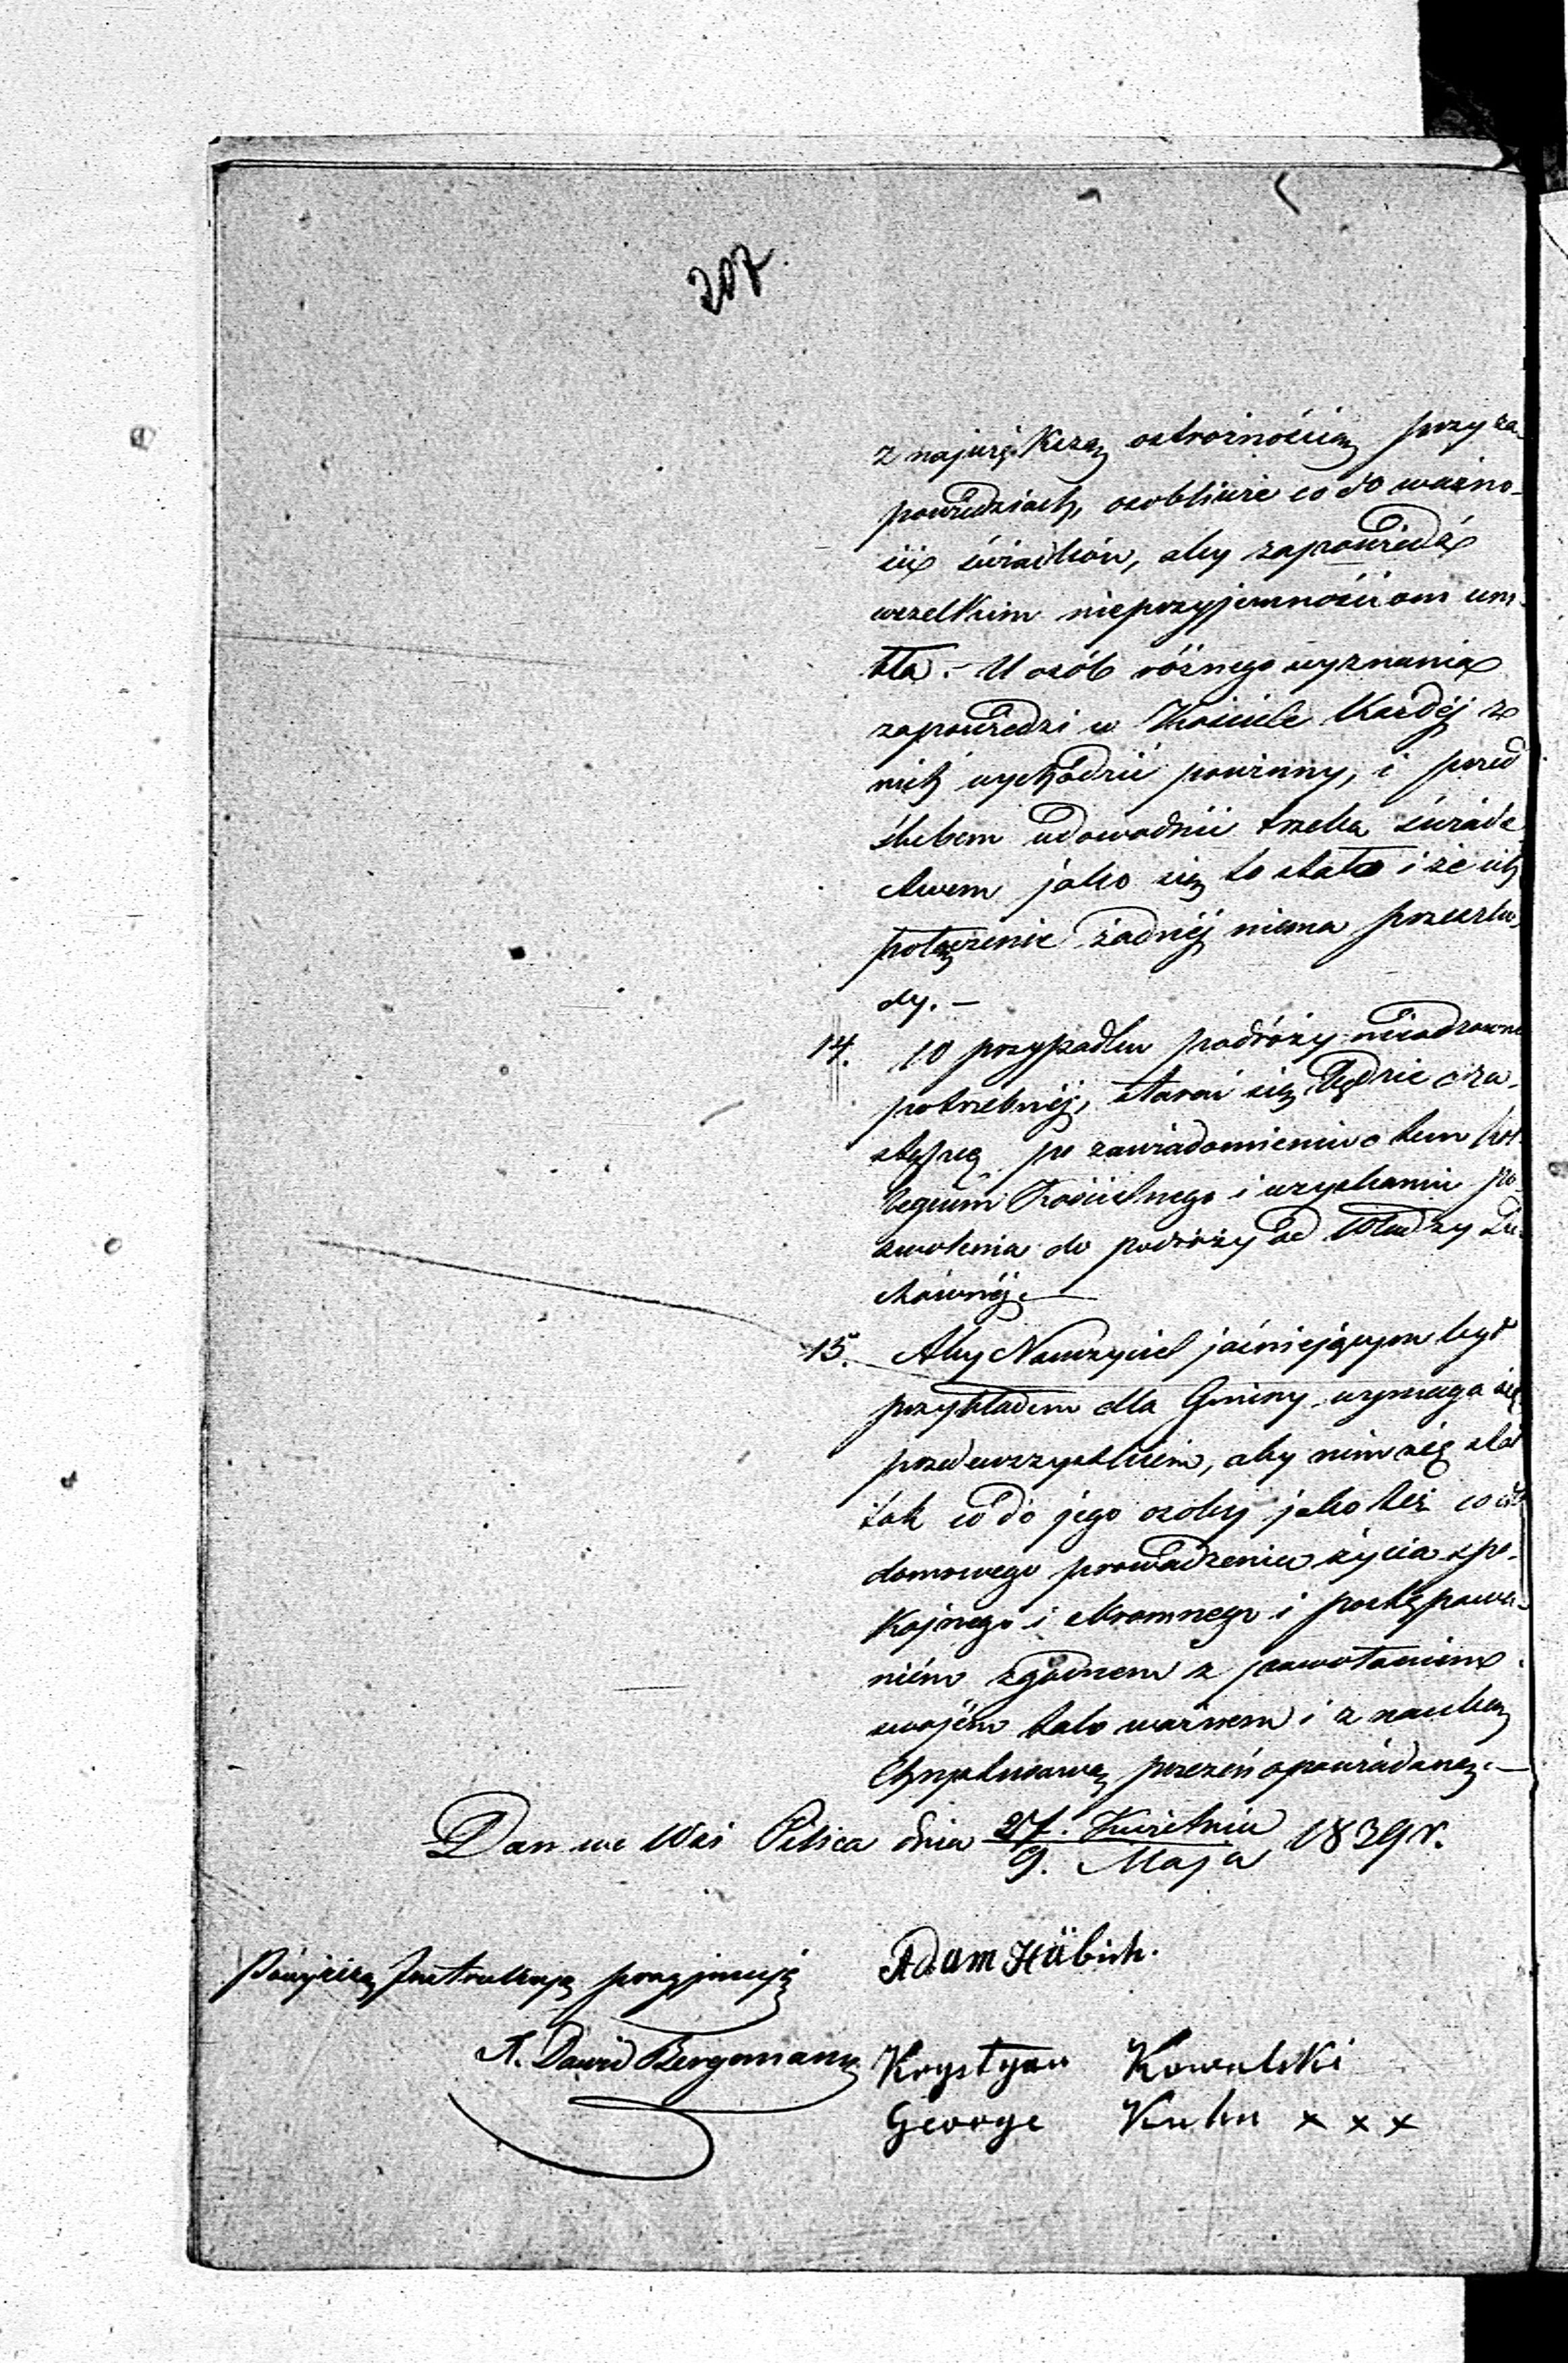 207
z najwiękrzą ostrożnością przy za-
powiedziach, osobliwie co do ważno-
ści świadków, aby zapowiedź
wszelkim nieprzyjemnościom um-
kła. – U osób różnego wyznania
zapowiedzi w Kościele Każdéj z
nich wychodzić powinny, i przed
ślubem udowodnić trzeba świade-
ctwem jako się to stało i że ich
połączenie żadnéj niema przeszko-
dy. –
14. W przypadku podróży
potrzebnéj, starać się będzie o za-
stępcę po zawiadomieniu o tem kol-
legium Kościelnego i uzyskaniu po-
zwolenia do podróży od Władzy Du-
chownéj. –
15. Aby Nauczyciel jaśniejącym był
przykładem dla Gminy wymaga się
przedewszystkiem, aby nim się stał
tak co do jego osoby jako też co do
domowego prowadzenia życia spo-
kojnego i skromnego i postępowa-
niém zgodnem z powołaniem
swojém tako ważnem i z nauką
Chrystusową przezeń opowiadaną. –
Dan we Wsi Pilica dnia 27. Kwietnia 1839 r.
9. Maja
Adam Häbich.
Powyższą Instrukcyą przyjmuję
J. Dawid Bergmann
Krystyan Kowalski
George Kuhn x x x